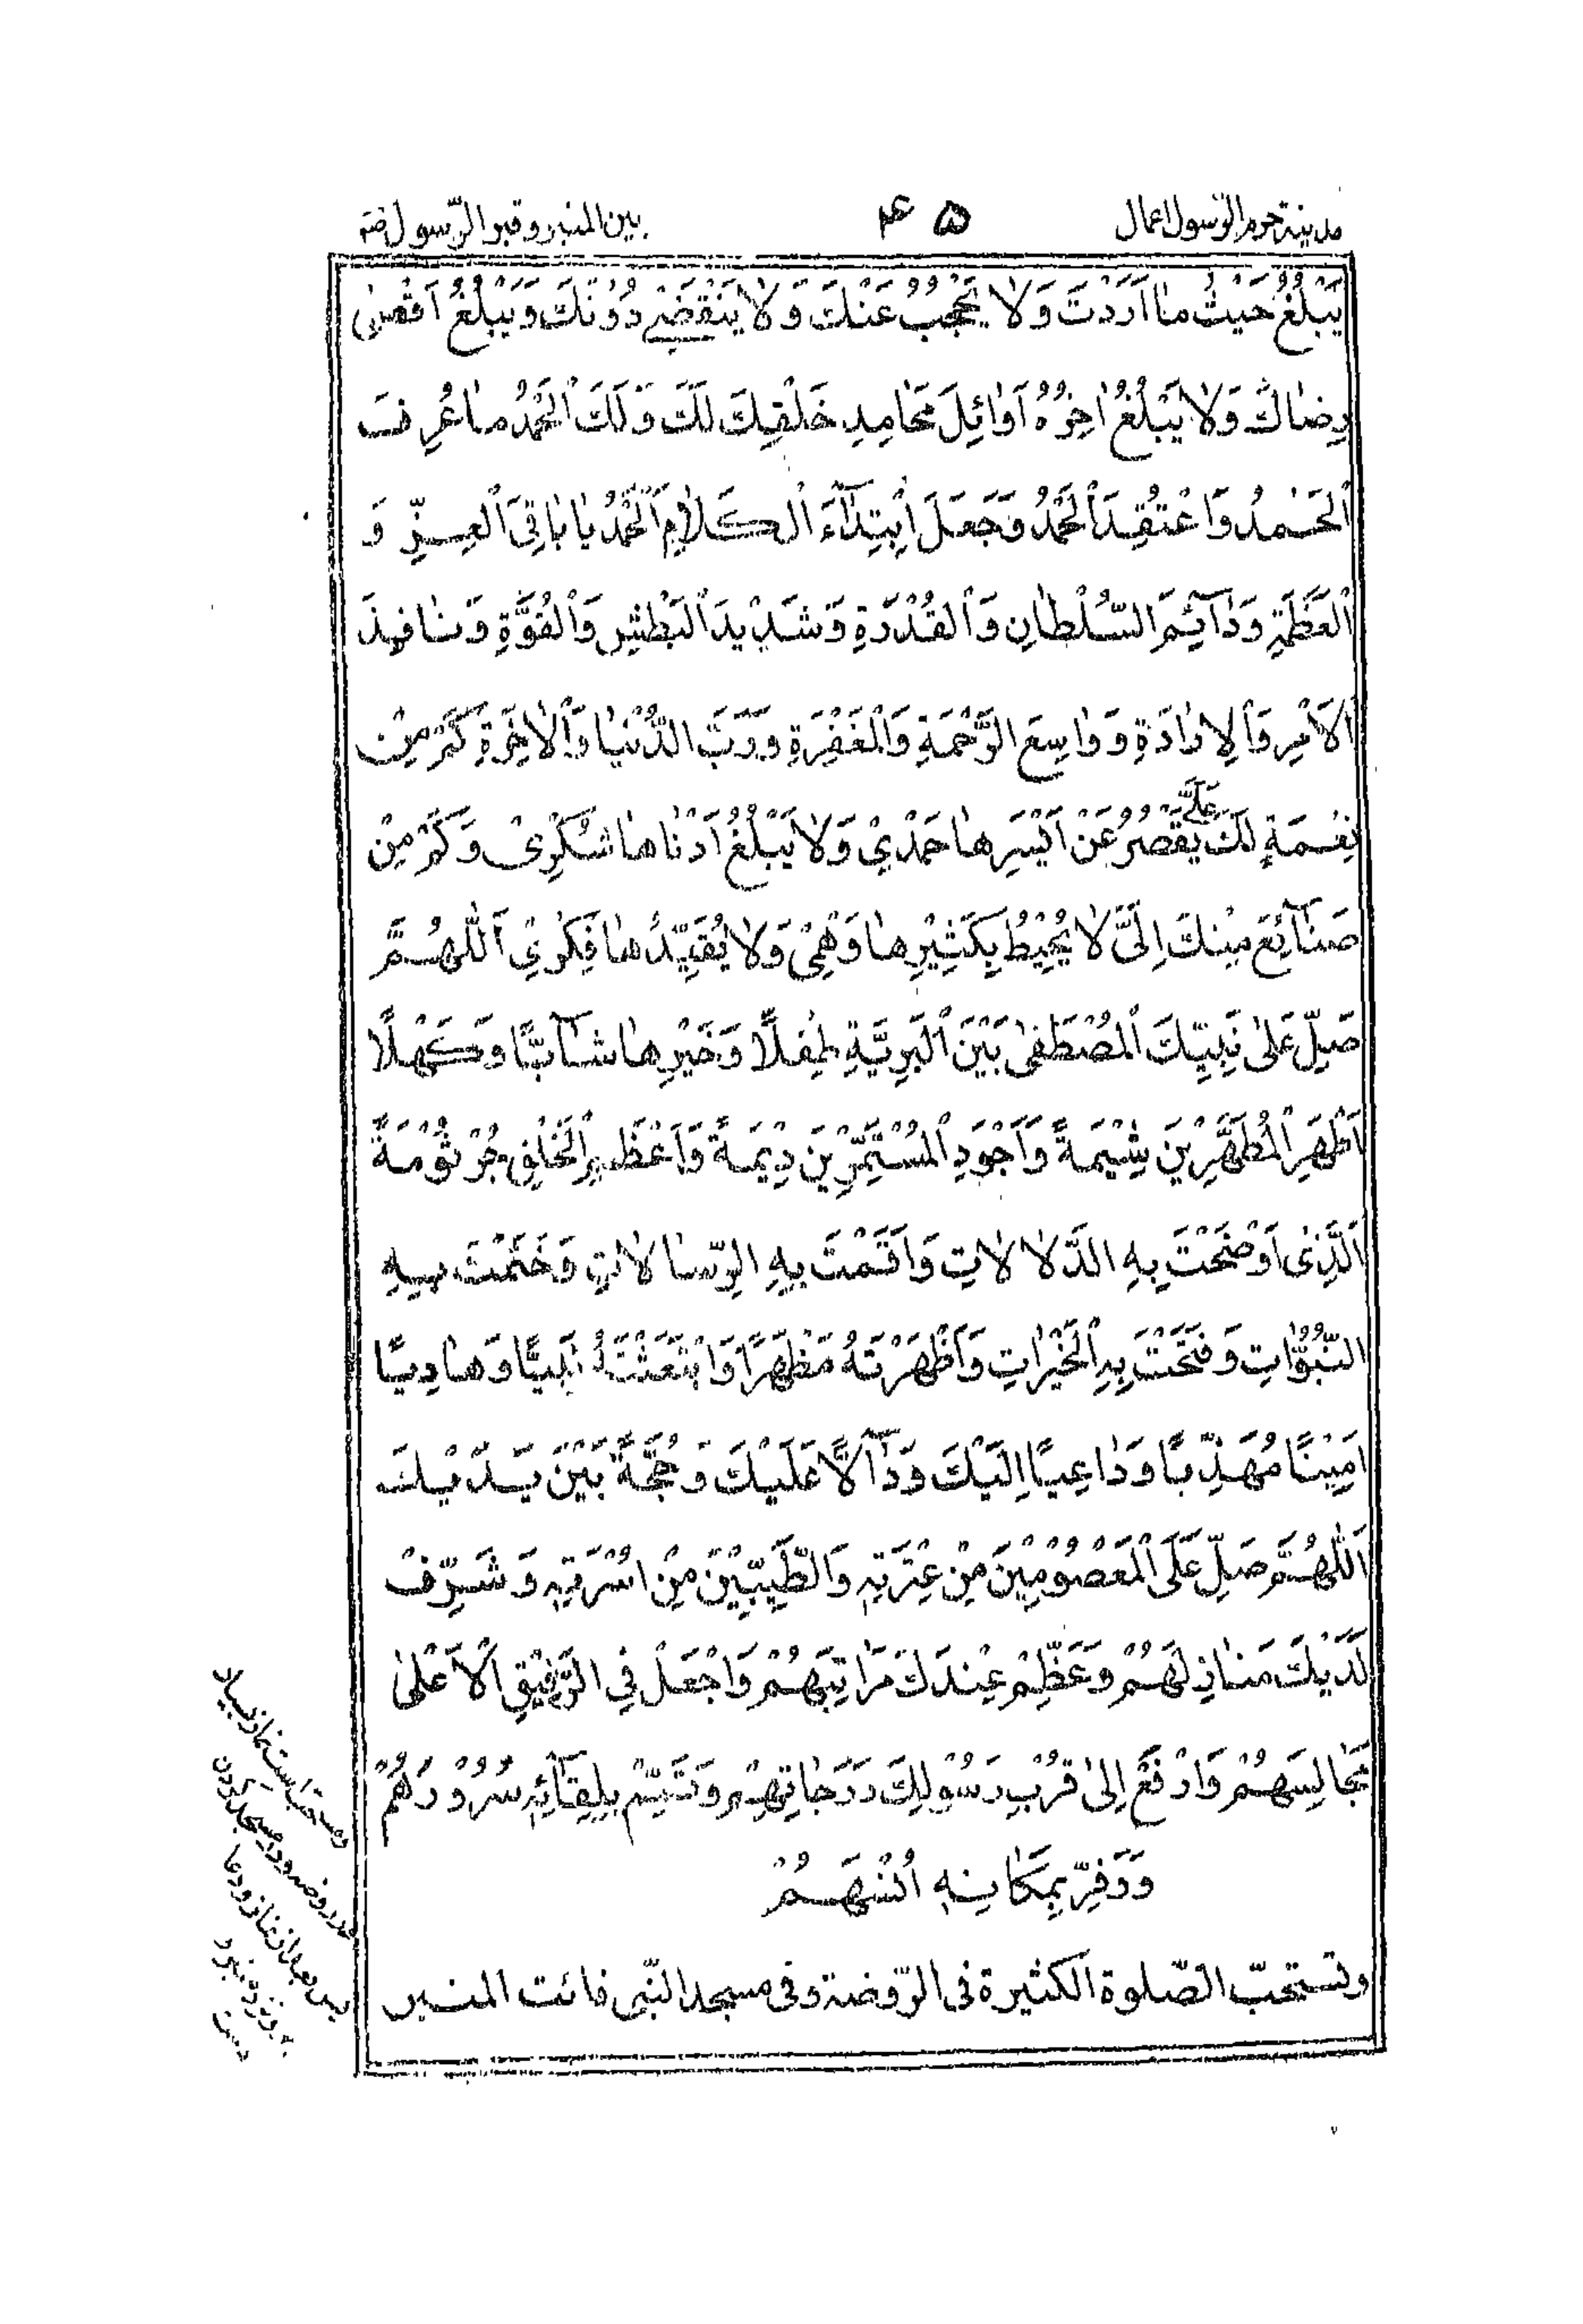 مدينة حرم الرّسول اعمال
۵
بين المنبر و قبر الرّسول
يَبْلُغُ حَيْثُ مٰا اَرَدْتَ وَ لاٰ يُحْجَبُ عَنْكَ وَ لاٰ يَنْقَضِيْ دُوْنَكَ وَ يَبْلُغُ اَقْصىٰ
رِضٰاكَ وَ لاٰ يَبْلُغُ اٰخِرُهُ اَوٰائِلَ مَحٰامِدِ خَلْقِكَ لَكَ وَ لَكَ اْلحَمْدُ مٰا عُرِفَ
اْلحَمْدُ وَ اعْتُقِدَ اْلحَمْدُ وَ جَعَلَ ابْتِدٰآءَ اْلكَلاٰمِ اَلْحَمْدُ يٰا بٰاقِىَ اْلعِزِّ وَ
اْلعَظَمَةِ وَ دٰآئِمَ السُّلْطٰانِ وَ اْلقُدْرَةِ وَ شَدِيْدَ اْلبَطْشِ وَ اْلقُوَّةِ وَ نٰافِذَ
اْلاَمْرِ وَ اْلاِرٰادَةِ وَ وٰاسِعَ الرَّحْمَةِ وَ اْلمَغْفِرَةِ وَ رَبَّ الدُّنْيٰا وَ اْلاٰخِرَةِ كَمْ مِنْ
نِعْمَةٍ لَكَ عَلَيَّ يَقْصُرُ عَنْ اَيْسَرِهٰا حَمْدِيْ وَ لاٰ يَبْلُغُ اَدْنٰاهٰا شُكْرِيْ وَ كَمْ مِنْ
صَنٰآئِعَ مِنْكَ اِلَىَّ لاٰ يُحِيْطُ بِكَثِيْرِهٰا وَهْمِىْ وَ لاٰ يُقَيِّدُهٰا فِكْرِيْ اَللّٰهُمَّ
صَلِّ عَلىٰ نَبِيِّكَ اْلمُصْطَفىٰ بَيْنَ اْلبَرِيَّةِ طِفْلاً وَ خَيْرِهٰا شٰآبًّا وَ كَهْلاً
اَطْهَرِ اْلمُطَهَّرِيْنَ شِيْمَةً وَ اَجْوَدِ اْلمُسْتَمِرِّيْنَ دِيْمَةً وَ اَعْظَمِ اْلخَلْقِ جُرْثُوْمَةً
اَلَّذِىْ اَوْضَحْتَ بِهِ الدَّلاٰلاٰتِ وَ اَقَمْتَ بِهِ الرِّسٰالاٰتِ وَ خَتَمْتَ بِهِ
النُّبُوّٰاتِ وَ فَتَحْتَ بِهِ اْلخَيْرٰاتِ وَ اَظْهَرْتَهُ مَظْهَرًا وَ ابْتَعَثْتَهُ نَبِيًّا وَ هٰادِيًا
اَمِيْنًا مُهَذَّبًا وَ دٰاعِيًا اِلَيْكَ وَ دٰآلاًّ عَلَيْكَ وَ حُجَّةً بَيْنَ يَدَيْكَ
اَللّٰهُمَّ صَلِّ عَلَى اْلمَعْصُوْمِيْنَ مِنْ عِتْرَتِهٖ وَ الطَّيِّبِيْنَ مِنْ اُسْرَتِهٖ وَ شَرِّفْ
لَدَيْكَ مَنٰازِلَهُمْ وَ عَظِّمْ عِنْدَكَ مَرٰاتِبَهُمْ وَ اجْعَلْ فِى الرَّفِيْقِ اْلاَعْلىٰ
مَجٰالِسَهُمْ وَ ارْفَعْ اِلىٰ قُرْبِ رَسُوْلِكَ دَرَجٰاتِهِمْ وَ تَمِّمْ بِلِقٰآئِهٖ سُرُوْرَهُمْ
وَ وَفِّرْ بِمَكٰانِهٖ اُنْسَهُمْ
و تستحبّ الصّلوة الكثيرة فى الرّوضة و فى مسجد النّبى فائت المنبر
و مستحب است نماز زياد
در روضه و در مسجد كردن
پس بعد از نماز و دعا